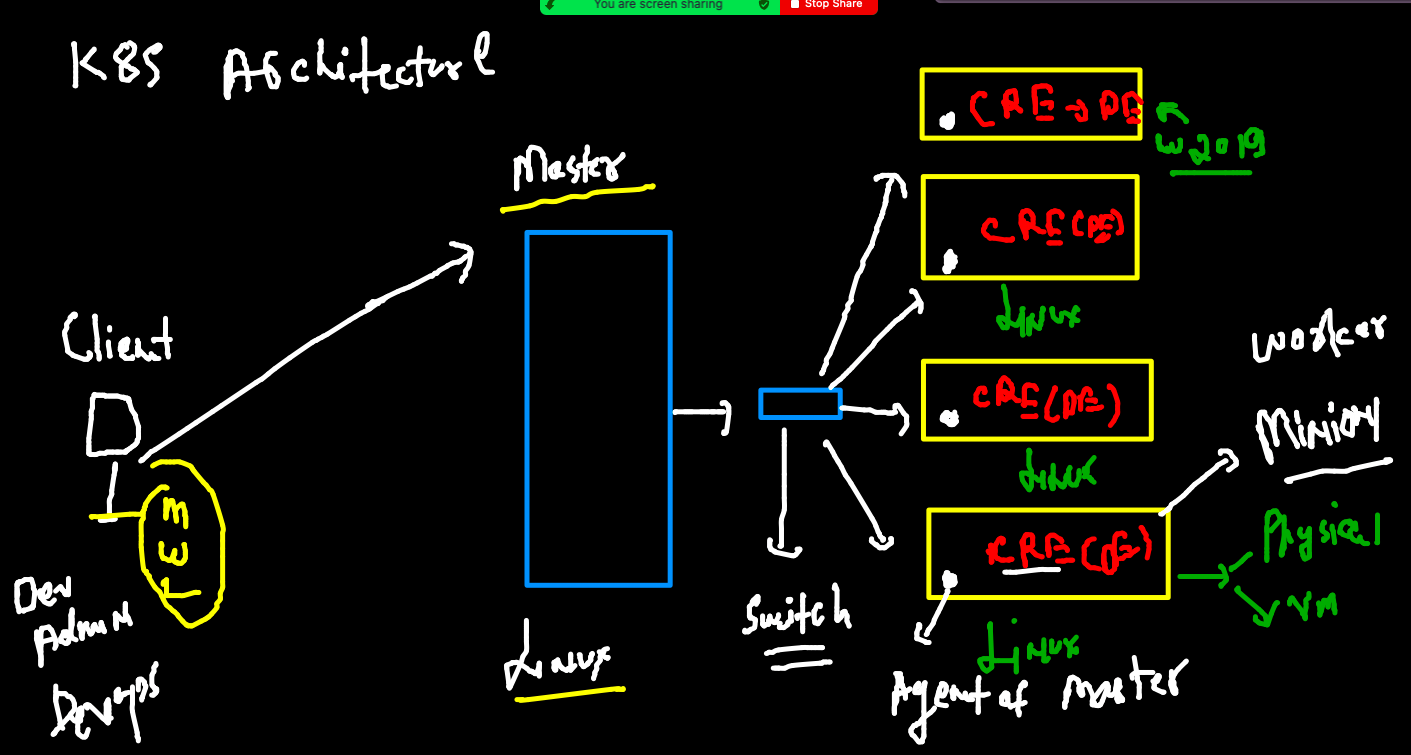 You are screen sharing
Stop Share
K8S Architecture
Master
Client
M
W
L
Dev
Admin
Devops
Linux
Switch
CRE → DE
W2019
CRE (DE)
Linux
CRE (DE)
Linux
CRE (DE)
Linux
Agent of Master
Worker
Minion
Physical
VM